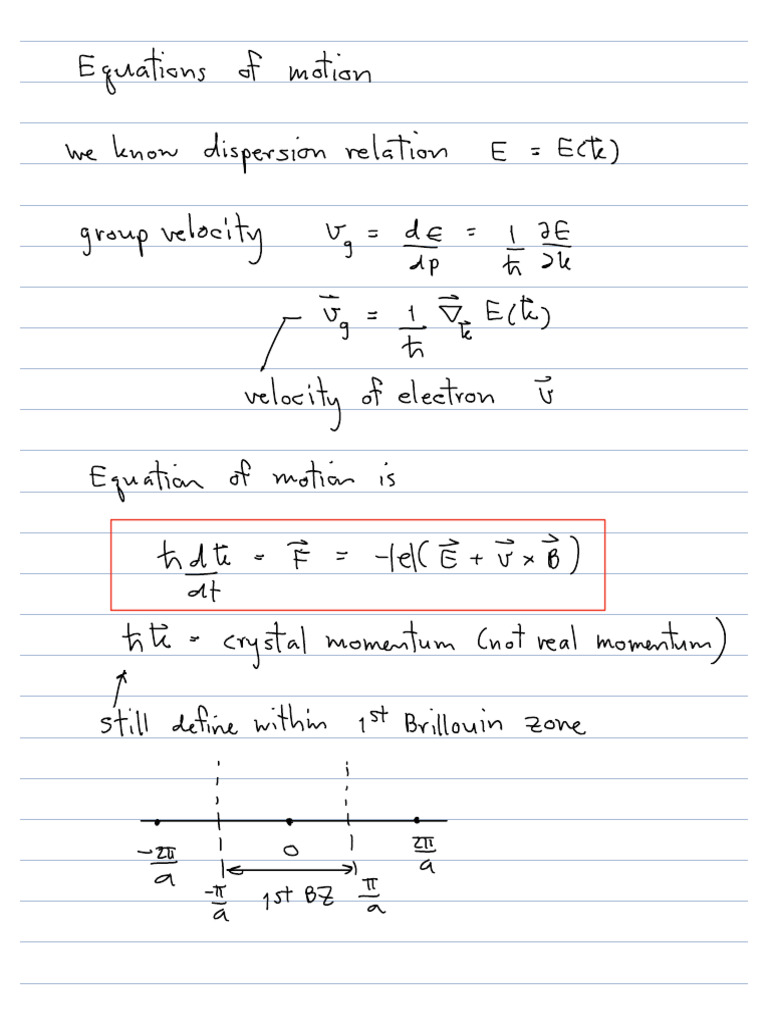 Equations of motion
we know dispersion relation E = E(k⃗)
group velocity v_g = dε/dp = 1/ħ ∂E/∂k
v⃗_g = 1/ħ ∇⃗_k⃗ E(k⃗)
velocity of electron v⃗
Equation of motion is
ħ dk⃗/dt = F⃗ = -|e|(E⃗ + v⃗ × B⃗)
ħk⃗ = crystal momentum (not real momentum)
still define within 1st Brillouin zone
-2π/a 0 2π/a
-π/a 1st BZ π/a